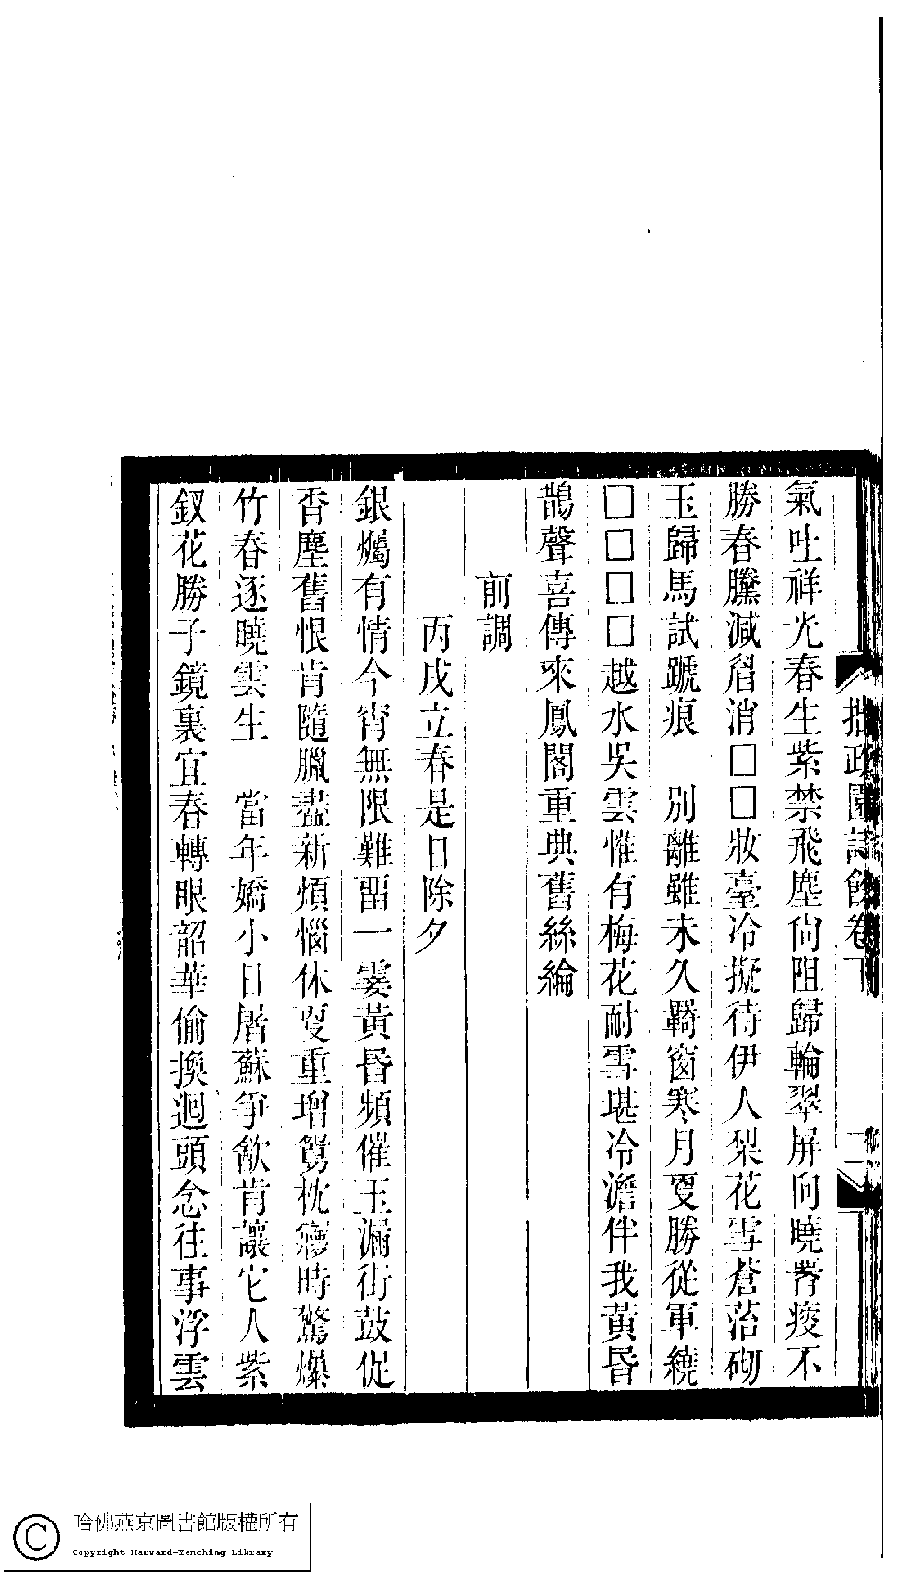 拙政園詩餘卷下
氣吐祥光春生紫禁飛塵尙阻歸輪翠屏向曉春瘦不
勝春騰減眉消□□妝臺冷擬待伊人梨花雪蒼苔砌
玉歸馬試蹏痕　別離雖未久羇窗寒月夏勝從軍繞
□□□□越水吳雲惟有梅花耐雪堪冷澹伴我黃昏
鵲聲喜傳來鳳閣重典舊絲綸
前調
丙戌立春是日除夕
銀燭有情今宵無限難畱一霎黃昏頻催玉漏街鼓促
香塵舊恨肯隨臘盡新煩惱休夏重增鴛枕寱時驚爆
竹春逐曉雲生　當年嬌小日屠蘇爭飮肯讓它人紫
釵花勝子鏡裏宜春轉眼韶華偷換迴頭念往事浮雲
哈佛燕京圖書館版權所有
Copyright Harvard-Yenching Library